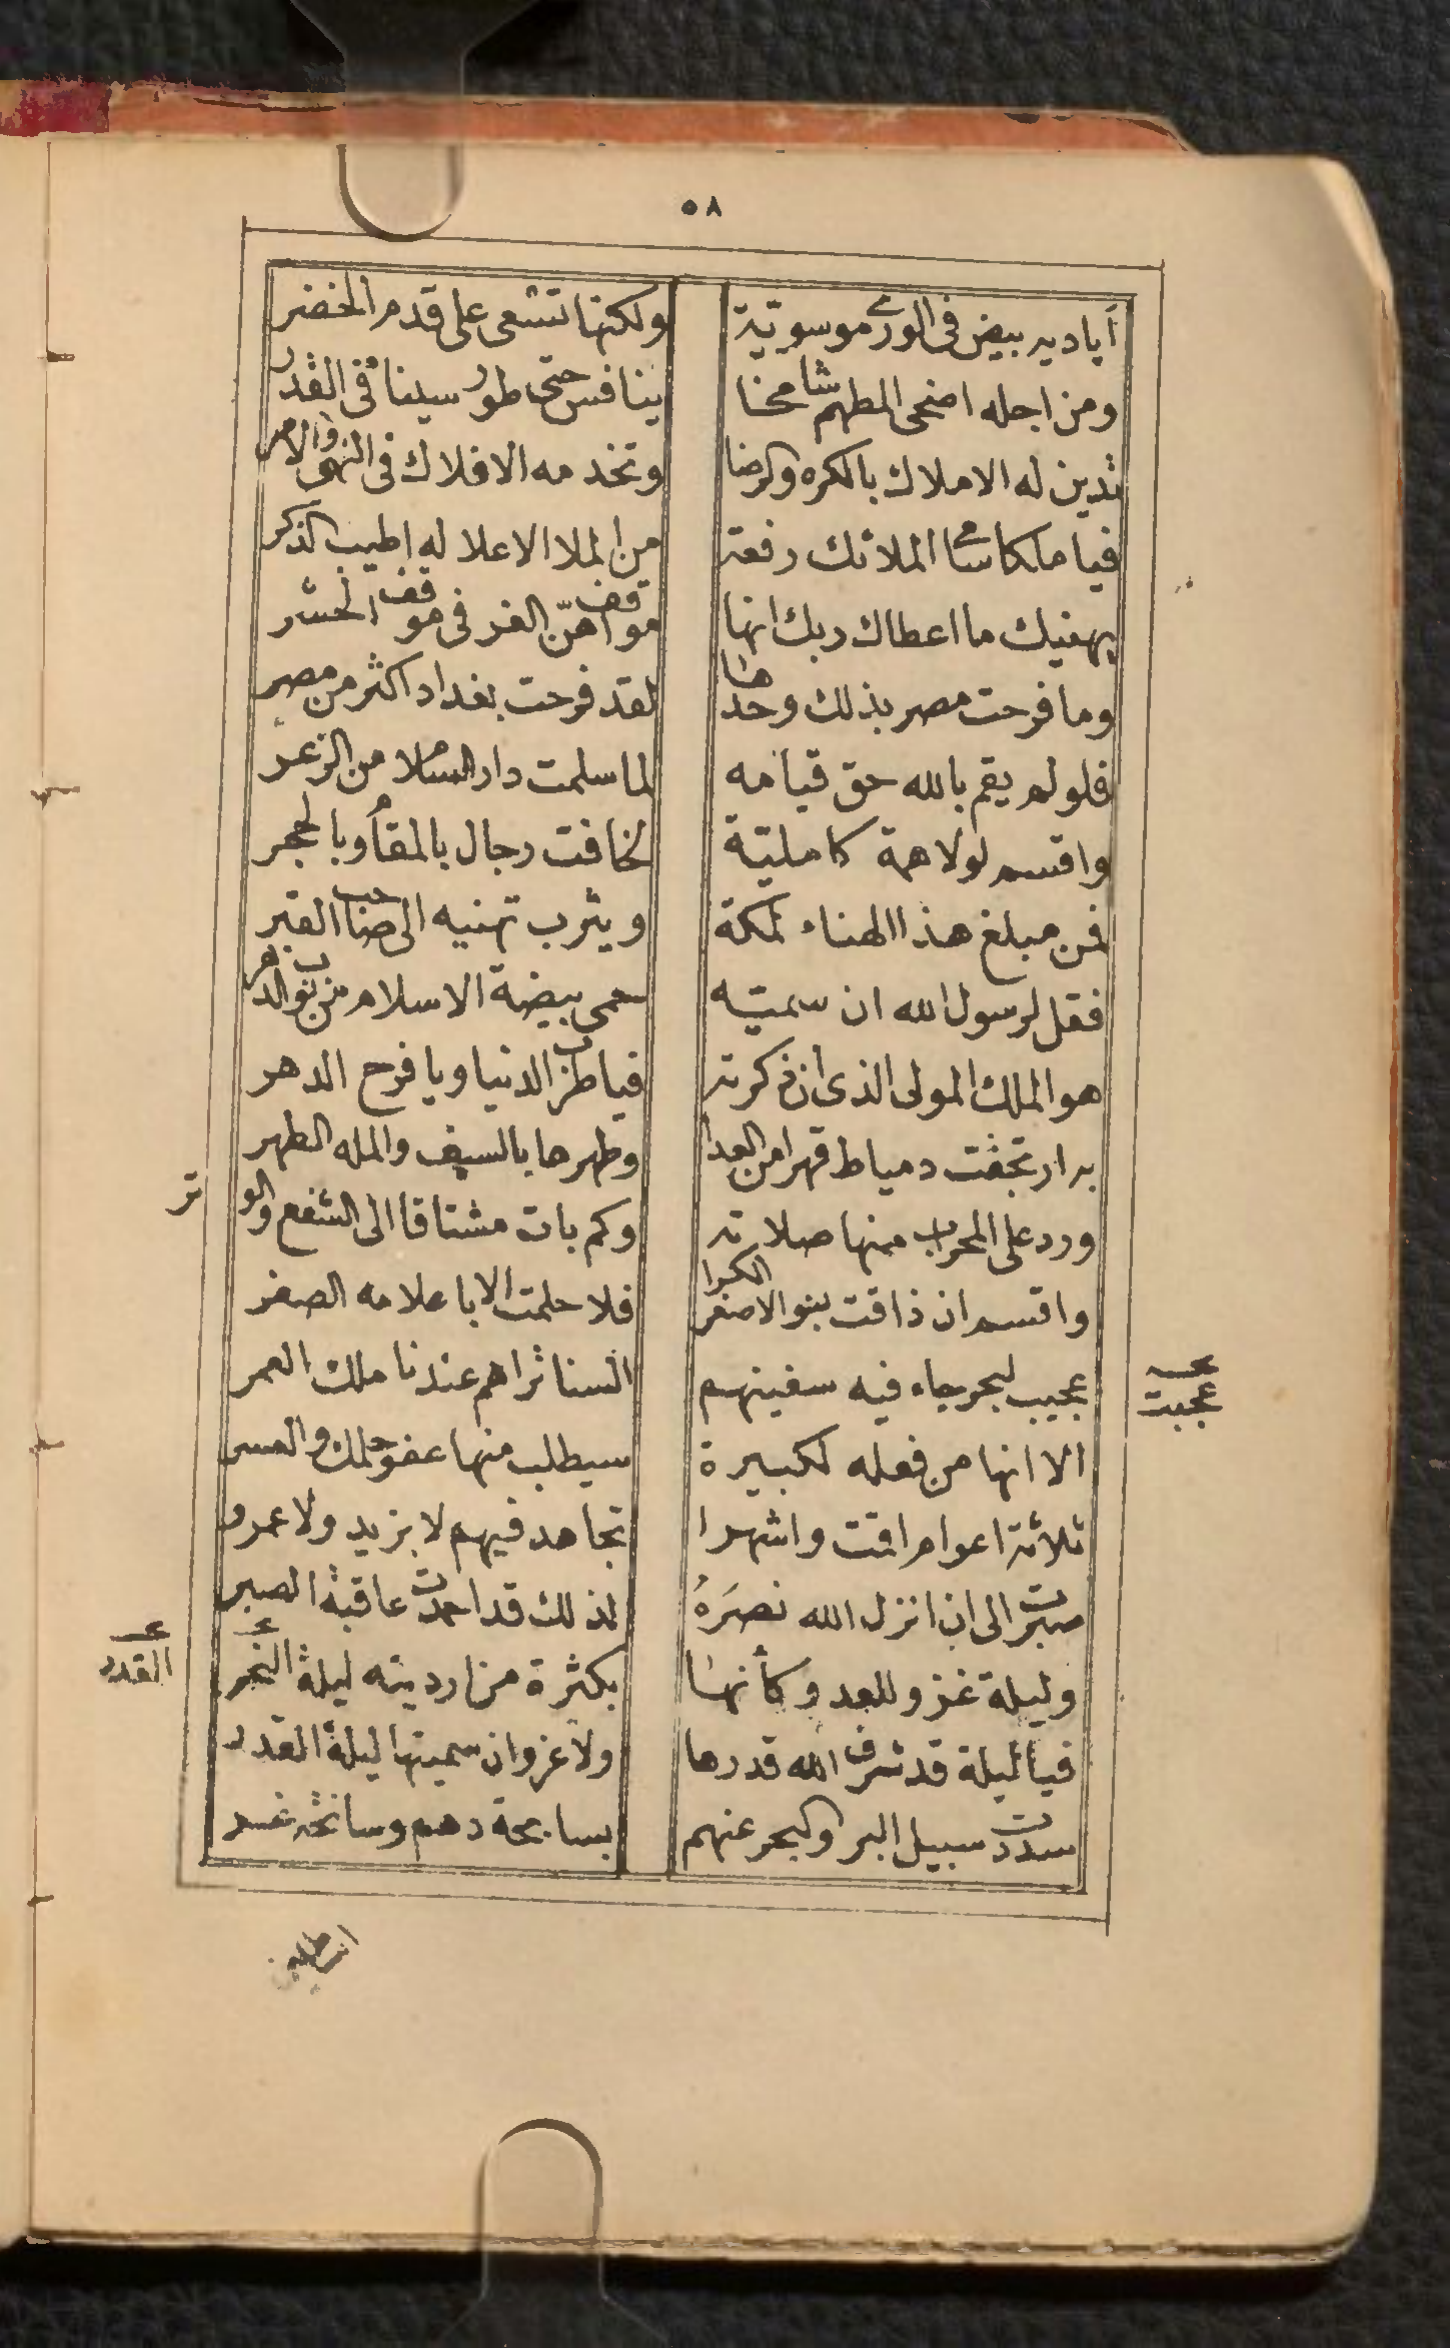 ٥٨
أياديه بيض فى الورى موسوية ولكنها تسعى على قدم الخضر
ومن اجله اضحى المطهم شامخا ينافس حتى طور سيناء فى القدر
تدين له الاملاك بالكره والرضا وتخدمه الافلاك فى النهى والامر
فيا ملكا سامى الملائك رفعة من الملا الاعلا له اطيب الذكر
يهنيك ما اعطاك ربك انها مواقف هنّ الغر فى موقف الحشر
وما فرحت مصر بذلك وحدها لقد فرحت بغداد اكثر من مصر
فلو لم يقم بالله حق قيامه لما سلمت دار السلام من الزعر
واقسم لولا همة كاملية لخافت رجال بالمقام وبالحجر
فمن مبلغ هذا الهناء لمكة ويثرب تهنيه الى صاحب القبر
فقل لرسول الله ان سميّه حمى بيضة الاسلام من نوب الدهر
هو الملك المولى الذى ان ذكرته فيا طرب الدنيا ويا فرح الدهر
به ارتجفت دمياط قهرا من العدا وطهرها بالسيف والمله الطهر
ورد على المحراب منها صلاته وكم بات مشتاقا الى الشفع والوتر
واقسم ان ذاقت بنو الاصفر الكرا فلا حلمت الا باعلامه الصفر
عجيب لبحر جاء فيه سفينهم السنا نراهم عندنا ملك الغمر
عجبت
الا انها من فعله لكبيرة سيطلب منها عفو حلمك والعسر
ثلاثة اعوام اقت واشهرا تجاهد فيهم لا بزيد ولا عمرو
صبرت الى ان انزل الله نصرَهُ لذلك قد احمدت عاقبة الصبر
وليلة غزو للعدو كأنها بكثرة من ارديته ليلة النحر
القدر
فيا ليلة قد شرف الله قدرها ولا غرو ان سميتها ليلة القدر
سددت سبيل البر والبحر عنهم بسابحة دهم وسانحة غر